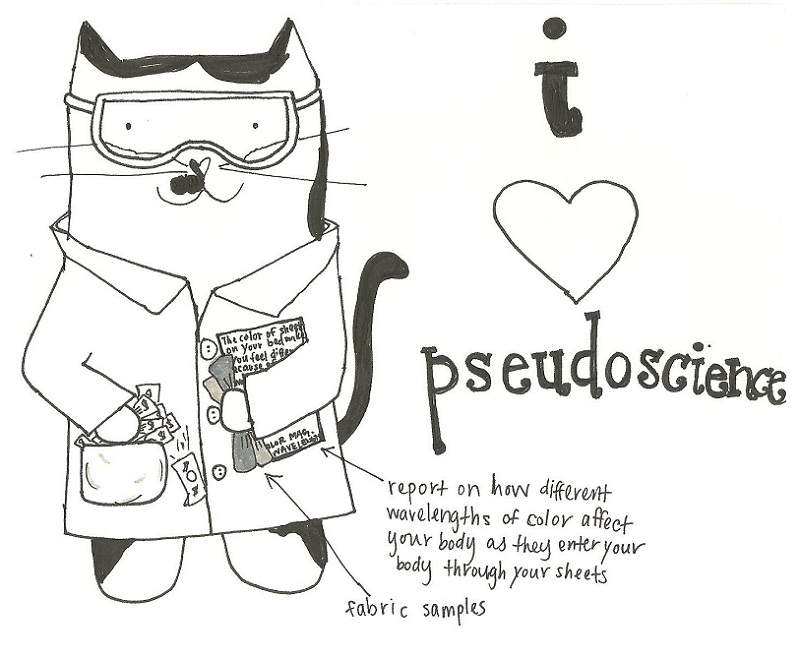 i
pseudoscience
The color of shee
on your bed
you feel diffe
cause
OLOR MAG.
WAVELEN
report on how different
wavelengths of color affect
your body as they enter your
body through your sheets
fabric samples